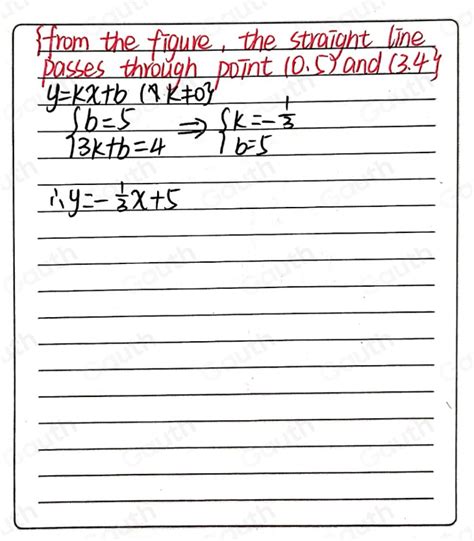 {from the figure, the straight line
passes through point (0.5) and (3.4}
y=kx+b (k≠0}
{b=5
3k+b=4 ⇒ {k=-1/3
b=5
∴y=-1/3x+5
Gauth